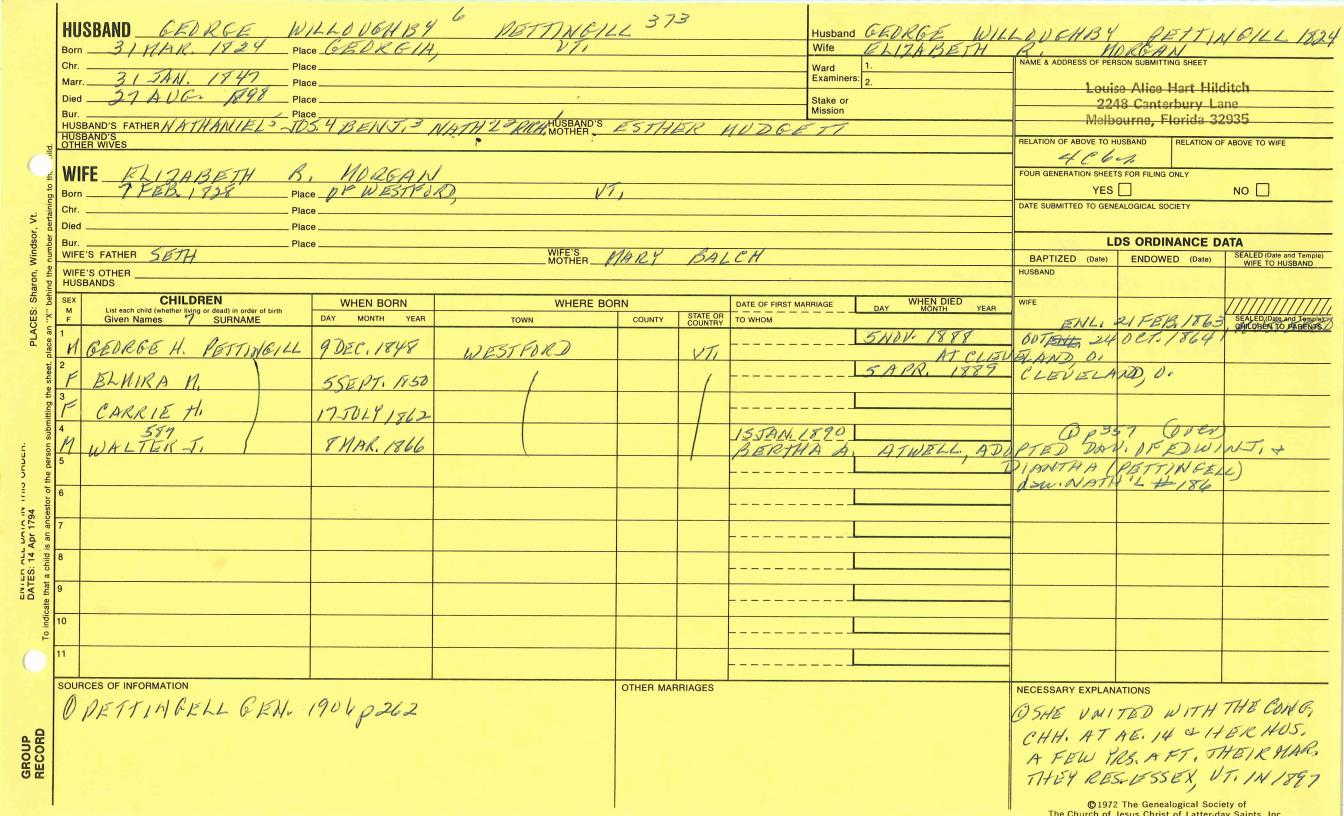 HUSBAND GEORGE WILLOUGHBY 6 PETTINGILL 373
Born 31 MAR. 1824 Place GEORGIA, VT.
Chr. Place
Marr. 31 JAN. 1847 Place
Died 27 AUG. 1898 Place
Bur. Place
HUSBAND'S FATHER NATHANIEL 5 JOS. 4 BENJ. 3 NATH 2 RICH. HUSBAND'S MOTHER ESTHER MUDGETT
HUSBAND'S OTHER WIVES
Husband GEORGE WILLOUGHBY PETTINGILL 1824
Wife ELIZABETH R. MORGAN
Ward Examiners: 1.
2.
Stake or Mission
NAME & ADDRESS OF PERSON SUBMITTING SHEET
Louise Alice Hart Hilditch
2248 Canterbury Lane
Melbourne, Florida 32935
RELATION OF ABOVE TO HUSBAND RELATION OF ABOVE TO WIFE
FOUR GENERATION SHEETS FOR FILING ONLY
YES NO
DATE SUBMITTED TO GENEALOGICAL SOCIETY
WIFE ELIZABETH R. MORGAN
Born 7 FEB. 1828 Place of WESTFORD, VT,
Chr. Place
Died Place
Bur. Place
WIFE'S FATHER SETH WIFE'S MOTHER MARY BALCH
WIFE'S OTHER HUSBANDS
LDS ORDINANCE DATA
BAPTIZED (Date) ENDOWED (Date) SEALED (Date and Temple) WIFE TO HUSBAND
HUSBAND
WIFE
SEALED (Date and Temple) CHILDREN TO PARENTS
SEX M F CHILDREN WHEN BORN WHERE BORN DATE OF FIRST MARRIAGE WHEN DIED
List each child (whether living or dead) in order of birth
Given Names SURNAME DAY MONTH YEAR TOWN COUNTY STATE OR COUNTRY TO WHOM DAY MONTH YEAR
ENL. 21 FEB. 1863
1 M GEORGE H. PETTINGILL 9 DEC. 1848 WESTFORD VT. 5 NOV. 1888 OUT 24 OCT. 1864
AT CLEVELAND, O.
2 F ELMIRA M. 5 SEPT. 1850 5 APR. 1889 CLEVELAND, O.
3 F CARRIE H. 17 JULY 1862
4 M WALTER J. 587 8 MAR. 1866 15 JAN. 1890 ① p357 (over)
BERTHA A. ATWELL, ADOPTED DAU. OF EDWIN J. +
DIANTHA (PETTINGELL)
dau. NATH'L #186
5
6
7
8
9
10
11
SOURCES OF INFORMATION
① PETTINGELL GEN. 1906 p262
OTHER MARRIAGES
NECESSARY EXPLANATIONS
① SHE UNITED WITH THE CONG.
CHH. AT AE. 14 & HER HUS.
A FEW YRS. AFT. THEIR MAR.
THEY RES. ESSEX, VT. IN 1897
©1972 The Genealogical Society of
The Church of Jesus Christ of Latter-day Saints, Inc.
PLACES: Sharon, Windsor, Vt.
ENTER ALL DATA IN THIS ORDER:
DATES: 14 Apr 1794
To indicate that a child is an ancestor of the person submitting the sheet, place an "X" behind the number pertaining to that child.
GROUP RECORD